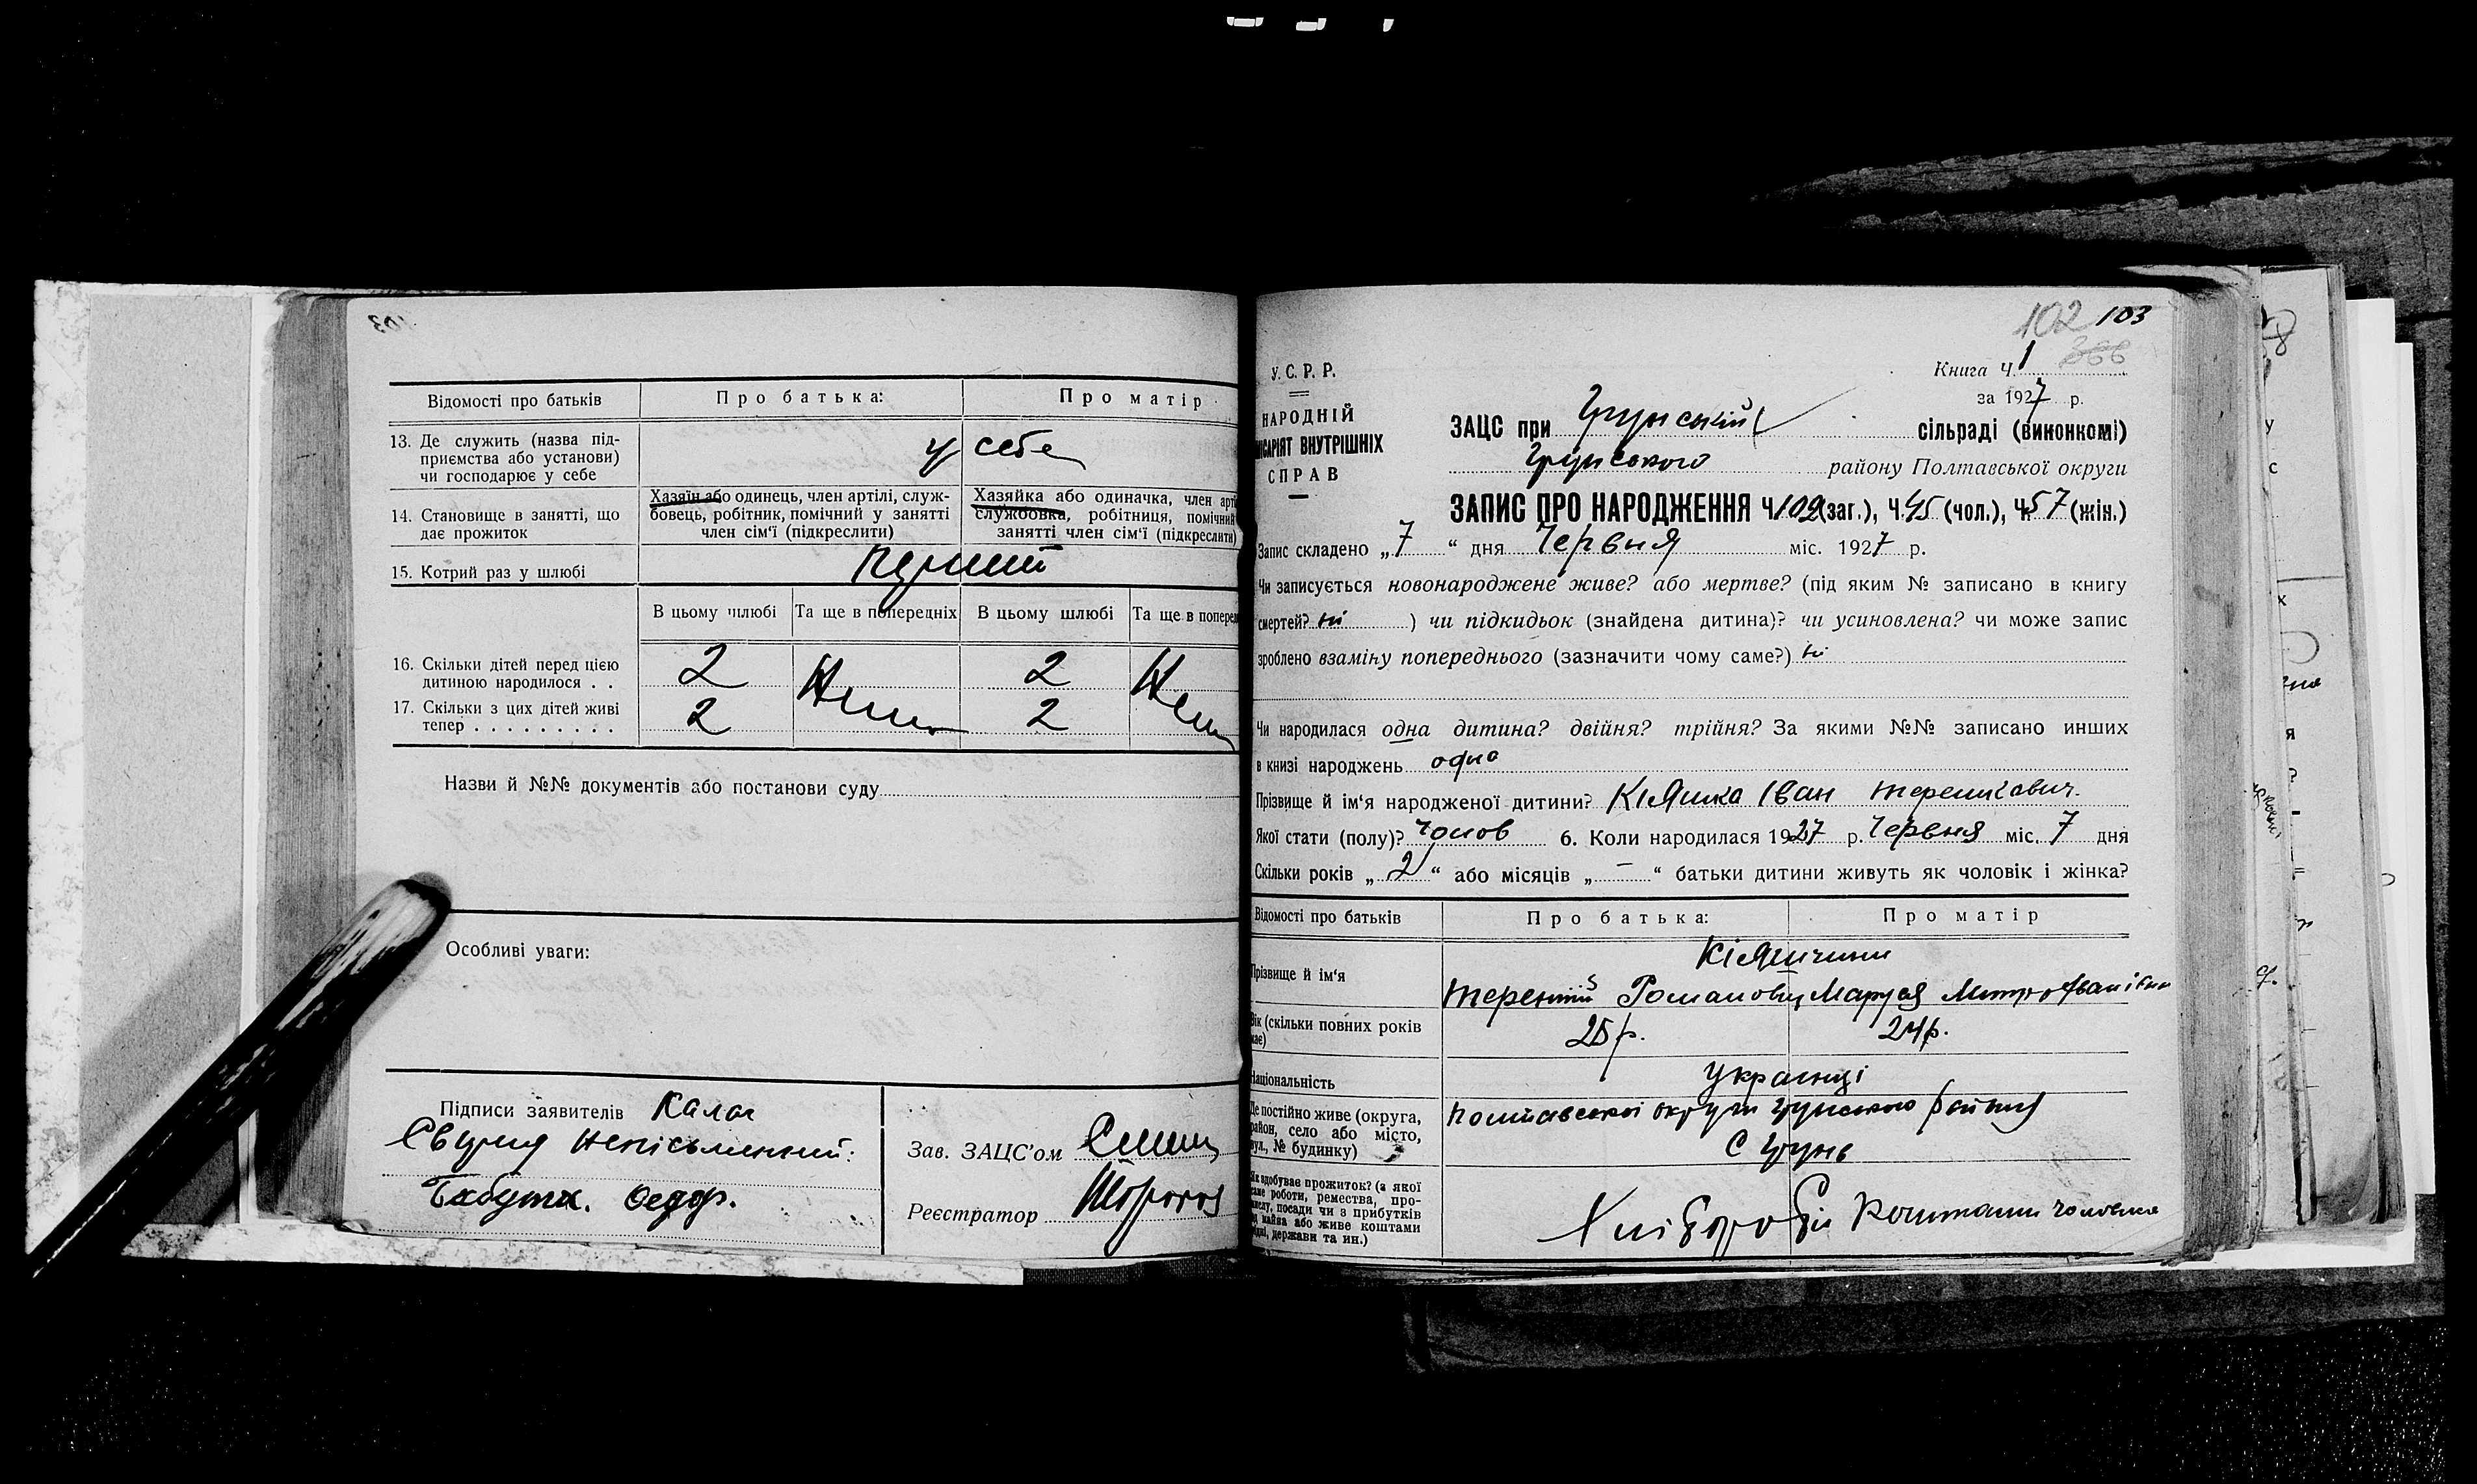 Відомості про батьків
Про батька:
Про матір
13. Де служить (назва під-
приємства або установи)
чи господарює у себе
у себе
14. Становище в занятті, що
дає прожиток
Хазяїн або одинець, член артілі, служ-
бовець, робітник, помічний у занятті
член сім'ї (підкреслити)
Хазяйка або одиначка, член арті
службовка, робітниця, помічний
занятті член сім'ї (підкреслити)
15. Котрий раз у шлюбі
перший
В цьому шлюбі
Та ще в попередніх
В цьому шлюбі
Та ще в поперед
16. Скільки дітей перед цією
дитиною народилося . .
2
2
17. Скільки з цих дітей живі
тепер . . . . . . . . .
2
2
Назви й №№ документів або постанови суду
Особливі уваги:
Підписи заявителів
неписьменний:
Бабута. Федор.
Зав. ЗАЦС'ом
Реєстратор
102 103
366
Книга Ч. 1
за 1927 р.
У. С. Р. Р.
НАРОДНІЙ
ІСАРІЯТ ВНУТРІШНІХ
СПРАВ
ЗАЦС при Грунській сільраді (виконкомі)
Грунського району Полтавської округи
ЗАПИС ПРО НАРОДЖЕННЯ Ч. 102 (заг.), Ч. 45 (чол.), Ч. 57 (жін.)
Запис складено „7“ дня Червня міс. 1927 р.
Чи записується новонароджене живе? або мертве? (під яким № записано в книгу
смертей? ні ) чи підкидьок (знайдена дитина)? чи усиновлена? чи може запис
зроблено взаміну попереднього (зазначити чому саме?) ні
Чи народилася одна дитина? двійня? трійня? За якими №№ записано инших
в книзі народжень одна
Прізвище й ім'я народженої дитини? Кіяшка Іван Терентієвич.
Якої стати (полу)? чолов 6. Коли народилася 1927 р. Червня міс. 7 дня
Скільки років „2“ або місяців „—“ батьки дитини живуть як чоловік і жінка?
Відомості про батьків
Про батька:
Про матір
Прізвище й ім'я
Терентій Романович Маруся Митрофанівна
Вік (скільки повних років
має)
25 р.
24 р.
Національність
Українці
Де постійно живе (округа,
район, село або місто,
вул., № будинку)
Полтавської округи Грунського району
С Грунь
Як здобуває прожиток? (з якої
саме роботи, ремества, про-
мислу, посади чи з прибутків
від майна або живе коштами
рідні, держави та ин.)
Хлібороб
Коштами чоловіка